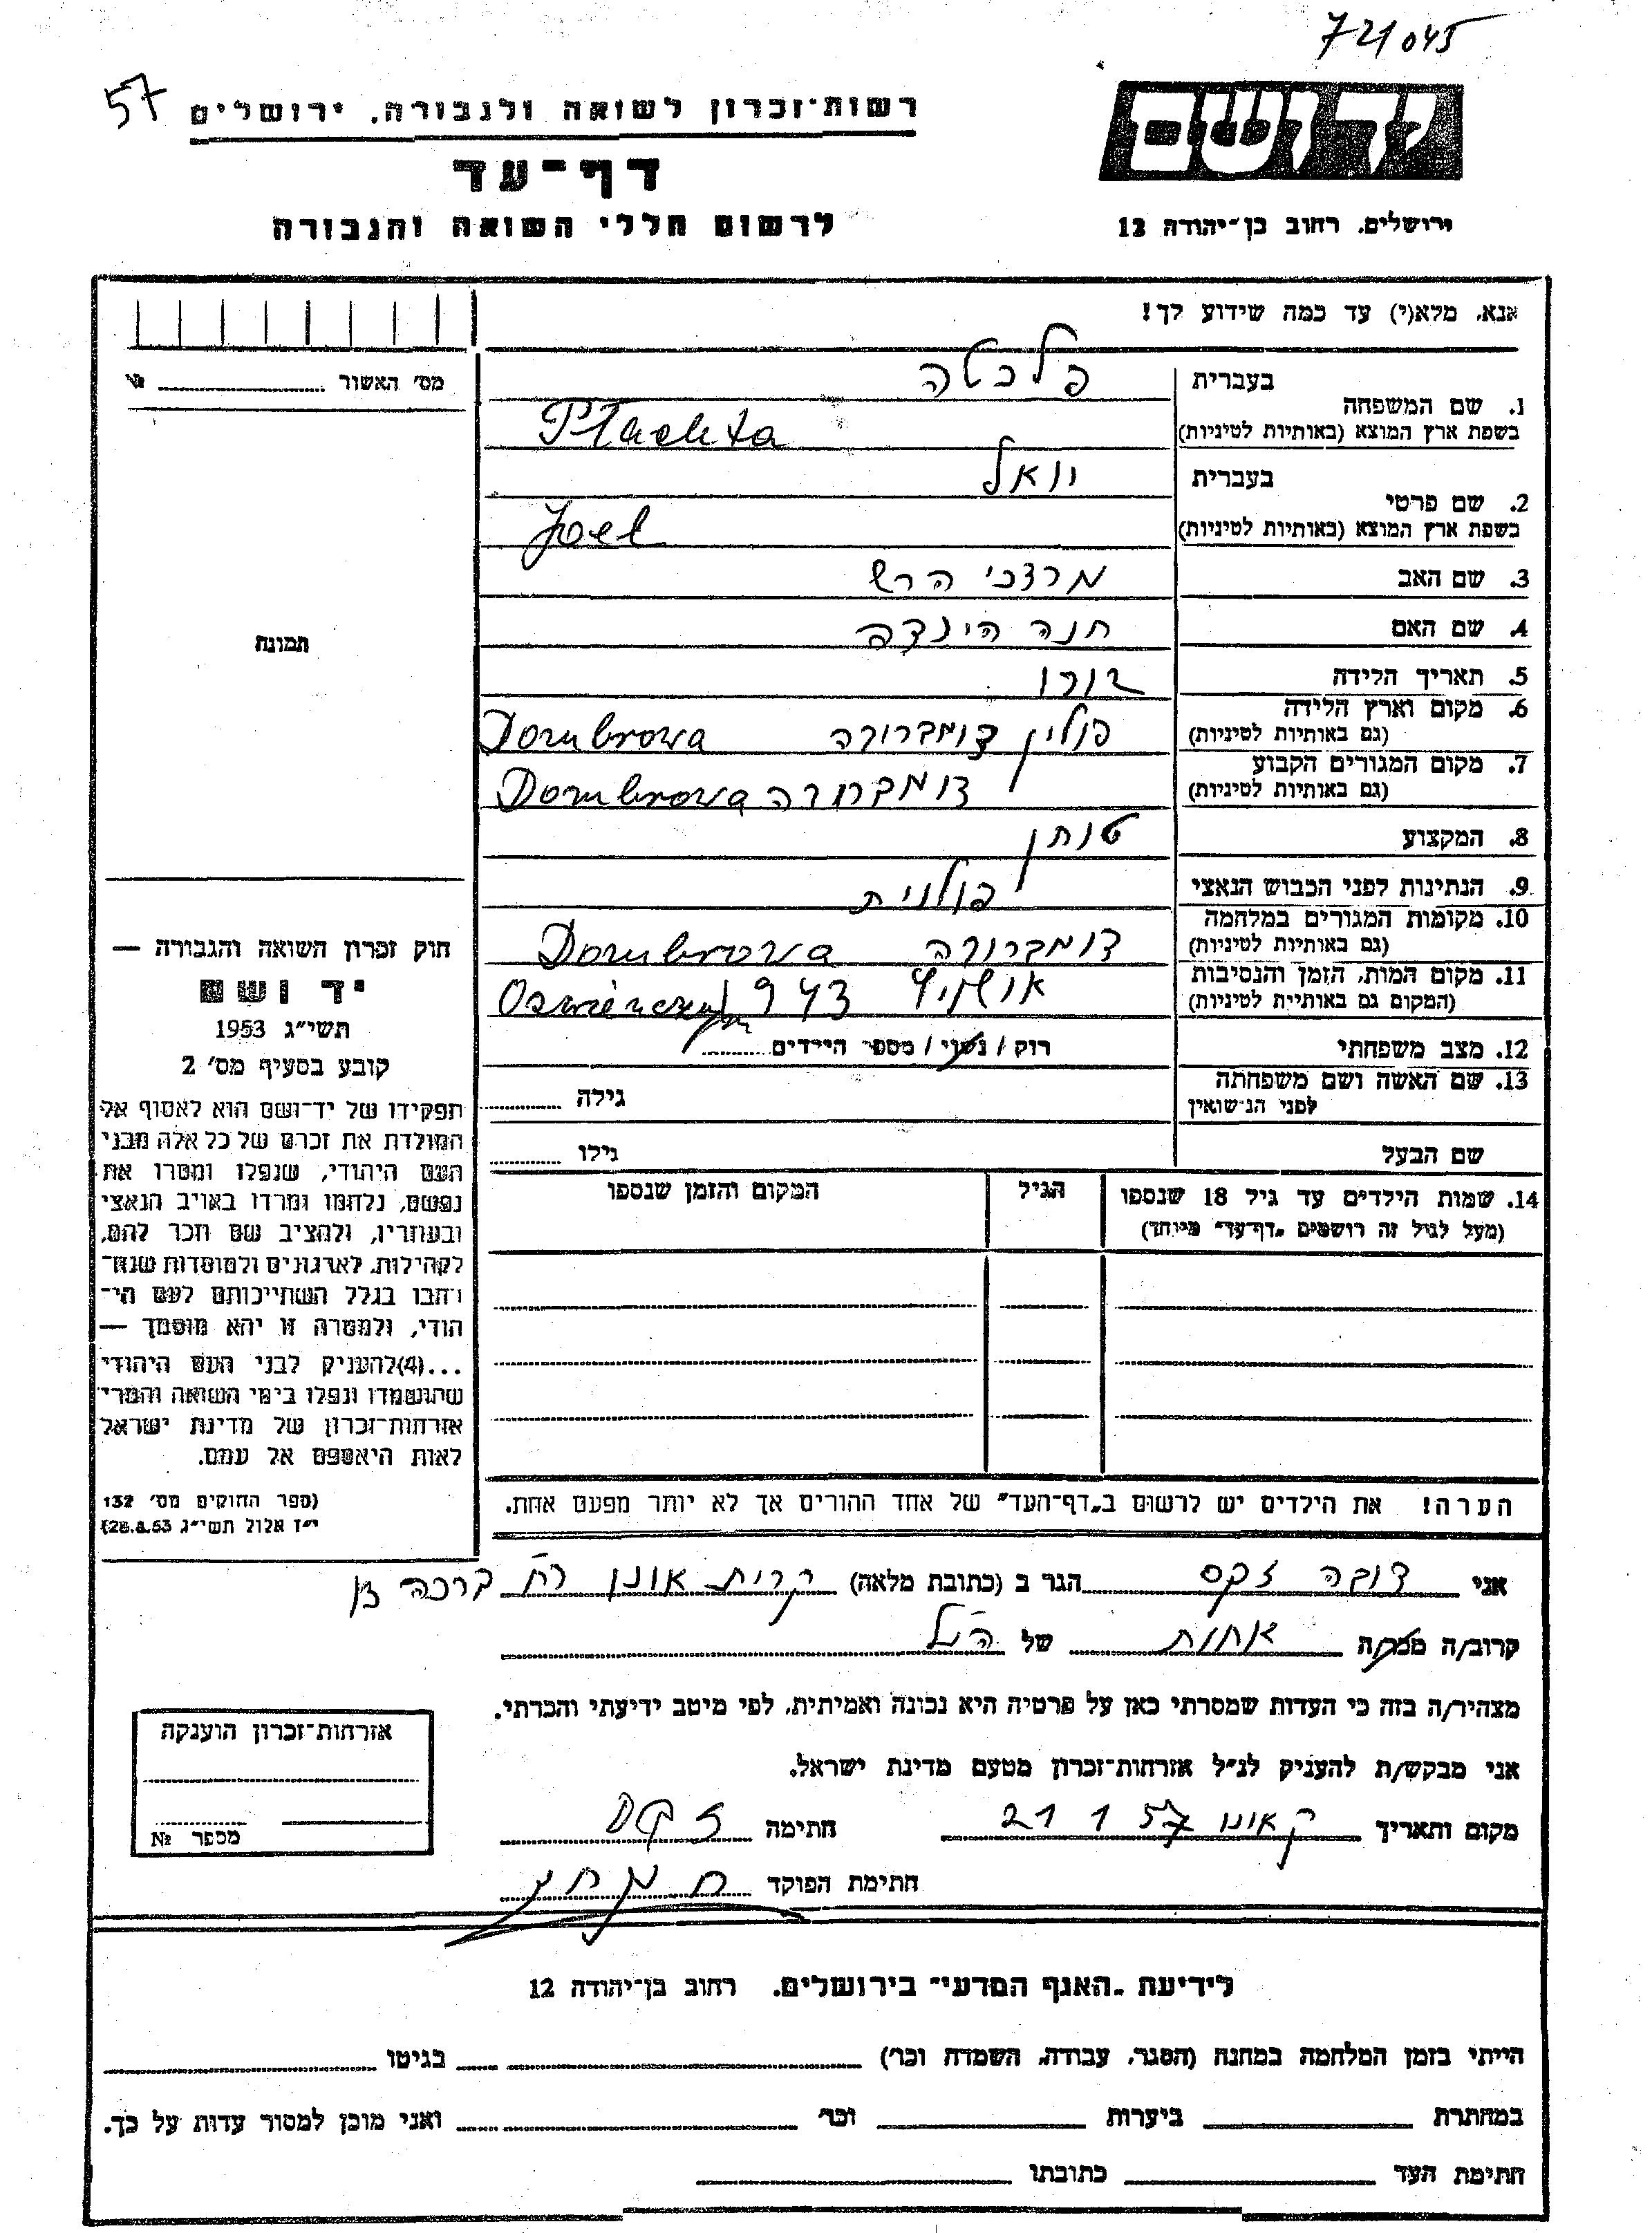 721045
57
רשות-זכרון לשואה ולגבורה, ירושלים
יד ושם
דף-עד
לרשום חללי השואה והגבורה
ירושלים, רחוב בן-יהודה 12
אנא, מלא(י) עד כמה שידוע לך!
מס׳ האשור ................ №
1. שם המשפחה
בעברית פלכטה
בשפת ארץ המוצא (באותיות לטיניות) Plachta
2. שם פרטי
בעברית יואל
בשפת ארץ המוצא (באותיות לטיניות) Joel
3. שם האב מרדכי הרש
4. שם האם חנה הינדה
5. תאריך הלידה
6. מקום וארץ הלידה (גם באותיות לטיניות) פולין דומברובה Dombrowa
7. מקום המגורים הקבוע (גם באותיות לטיניות) דומברובה Dombrowa
8. המקצוע טוחן
9. הנתינות לפני הכבוש הנאצי פולנית
10. מקומות המגורים במלחמה (גם באותיות לטיניות) דומברובה Dombrowa
11. מקום המות, הזמן והנסיבות (המקום גם באותיות לטיניות) אושויץ 943
12. מצב משפחתי רוק / נשוי / מספר הילדים
13. שם האשה ושם משפחתה לפני הנישואין גילה
שם הבעל גילו
14. שמות הילדים עד גיל 18 שנספו
(מעל לגיל זה רושמים „דף-עד״ מיוחד)
הגיל
המקום והזמן שנספו
הערה! את הילדים יש לרשום ב„דף-העד״ של אחד ההורים אך לא יותר מפעם אחת.
תמונה
חוק זכרון השואה והגבורה —
יד ושם
תשי״ג 1953
קובע בסעיף מס׳ 2
תפקידו של יד-ושם הוא לאסוף אל
המולדת את זכרם של כל אלה מבני
העם היהודי, שנפלו ומסרו את
נפשם, נלחמו ומרדו באויב הנאצי
ובעוזריו, ולהציב שם וזכר להם,
לקהילות, לארגונים ולמוסדות שנח-
רבו בגלל השתייכותם לעם הי-
הודי, ולמטרה זו יהא מוסמך —
...(4) להעניק לבני העם היהודי
שהושמדו ונפלו בימי השואה והמרי
אזרחות-זכרון של מדינת ישראל
לאות היאספם אל עמם.
(ספר החוקים מס׳ 132
י״ז אלול תשי״ג 28.8.53)
אני דובה זקס הגר ב (כתובת מלאה) קרית אונו רח׳ ברכה
קרוב/ה מכר/ה אחות של הנ״ל
מצהיר/ה בזה כי העדות שמסרתי כאן על פרטיה היא נכונה ואמיתית, לפי מיטב ידיעתי והכרתי.
אני מבקש/ת להעניק לנ״ל אזרחות-זכרון מטעם מדינת ישראל.
מקום ותאריך ק אונו 21 1 57 חתימה זקס
חתימת הפוקד
אזרחות-זכרון הוענקה
מספר №
לידיעת „האגף המדעי״ בירושלים, רחוב בן-יהודה 12
הייתי בזמן המלחמה במחנה (הסגר, עבודה, השמדה וכו׳) בגיטו
במחתרת ביערות וכו׳ ואני מוכן למסור עדות על כך.
חתימת העד כתובתו